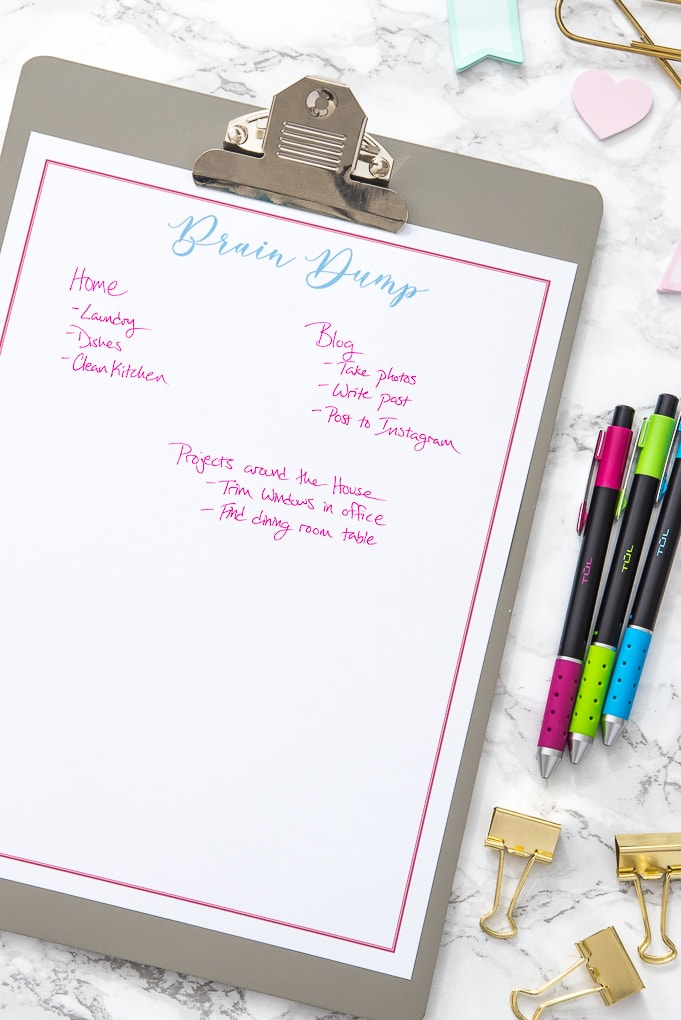 Brain Dump
Home
- Laundry
- Dishes
- Clean Kitchen
Blog
- Take photos
- Write post
- Post to Instagram
Projects around the House
- Trim Windows in office
- Find dining room table
TUL
TUL
TUL